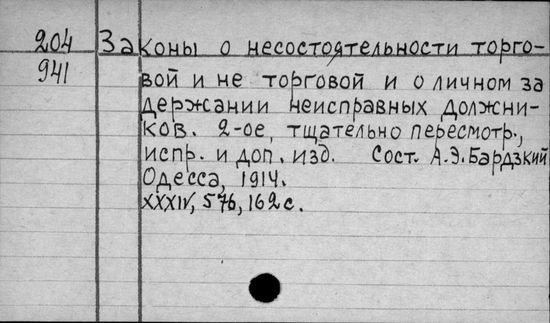 204 Законы о несостоятельности торго-
941 вой и не торговой и о личном за
держании неисправных должни-
ков. 2-ое, тщательно пересмотр.,
испр. и доп. изд. Сост. А.Э.Бардзкий
Одесса, 1914.
XXXIV, 576, 162 с.